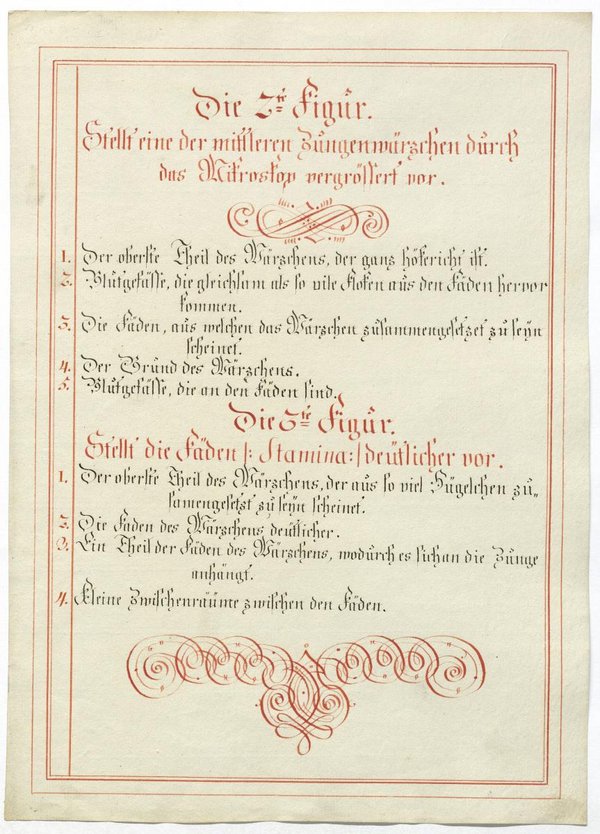 Die 2te Figur.
Stellt eine der mittleren Zungenwärzchen durch
das Mikroskop vergrössert vor.
1. Der oberste Theil des Wärzchens, der ganz hökericht ist.
2. Blutgefässe, die gleichsam als so vile Floken aus den Fäden hervor
kommen.
3. Die Fäden, aus welchen das Wärzchen zusammengesetzet zu seyn
scheinet.
4. Der Grund des Wärzchens.
5. Blutgefässe, die an den Fäden sind.
Die 3te Figur.
Stellt die Fäden /: Stamina :/ deutlicher vor.
1. Der oberste Theil des Wärzchens, der aus so viel Hügelchen zu„
samengesetzt zu seyn scheinet.
2. Die Fäden des Wärzchens deutlicher.
3. Ein Theil der Fäden des Wärzchens, wodurch es sich an die Zunge
anhängt.
4. Kleine Zwischenräume zwischen den Fäden.